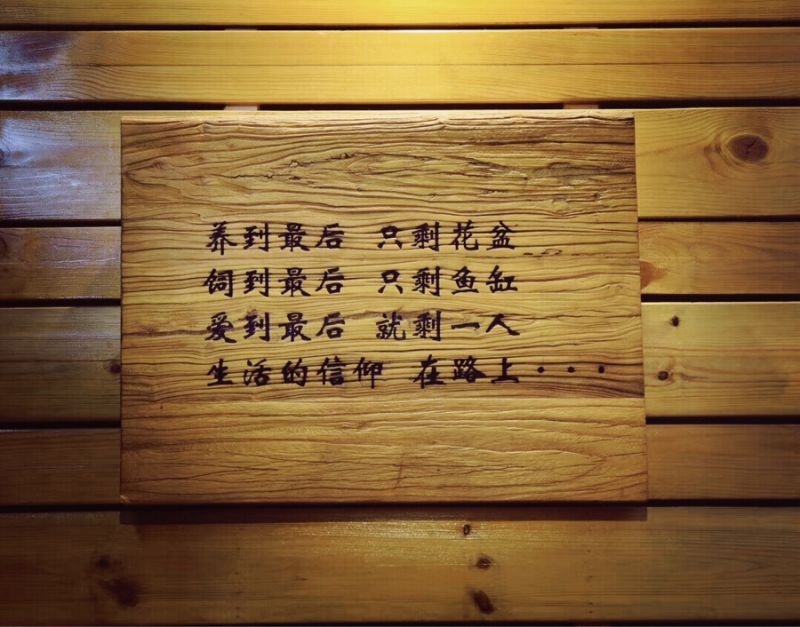 养到最后 只剩花盆
饲到最后 只剩鱼缸
爱到最后 就剩一人
生活的信仰 在路上···